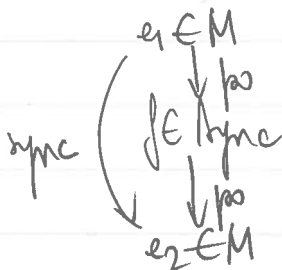 e₁ ∈ M
po
sync
f ∈ Sync
po
e₂ ∈ M